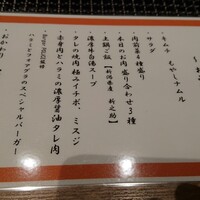 ～お
・キムチ
もやしナムル
・サラダ
・肉前菜4種盛り
・本日のお肉盛り合わせ3種
・土鍋ご飯【新潟県産 新之助】
・濃厚味白湯スープ
・タレの焼肉 極みイチボ、ミスジ
・赤身肉とハラミの濃厚醤油タレ肉
ハラミとフォアグラのスペシャルバーガー
・おかわり